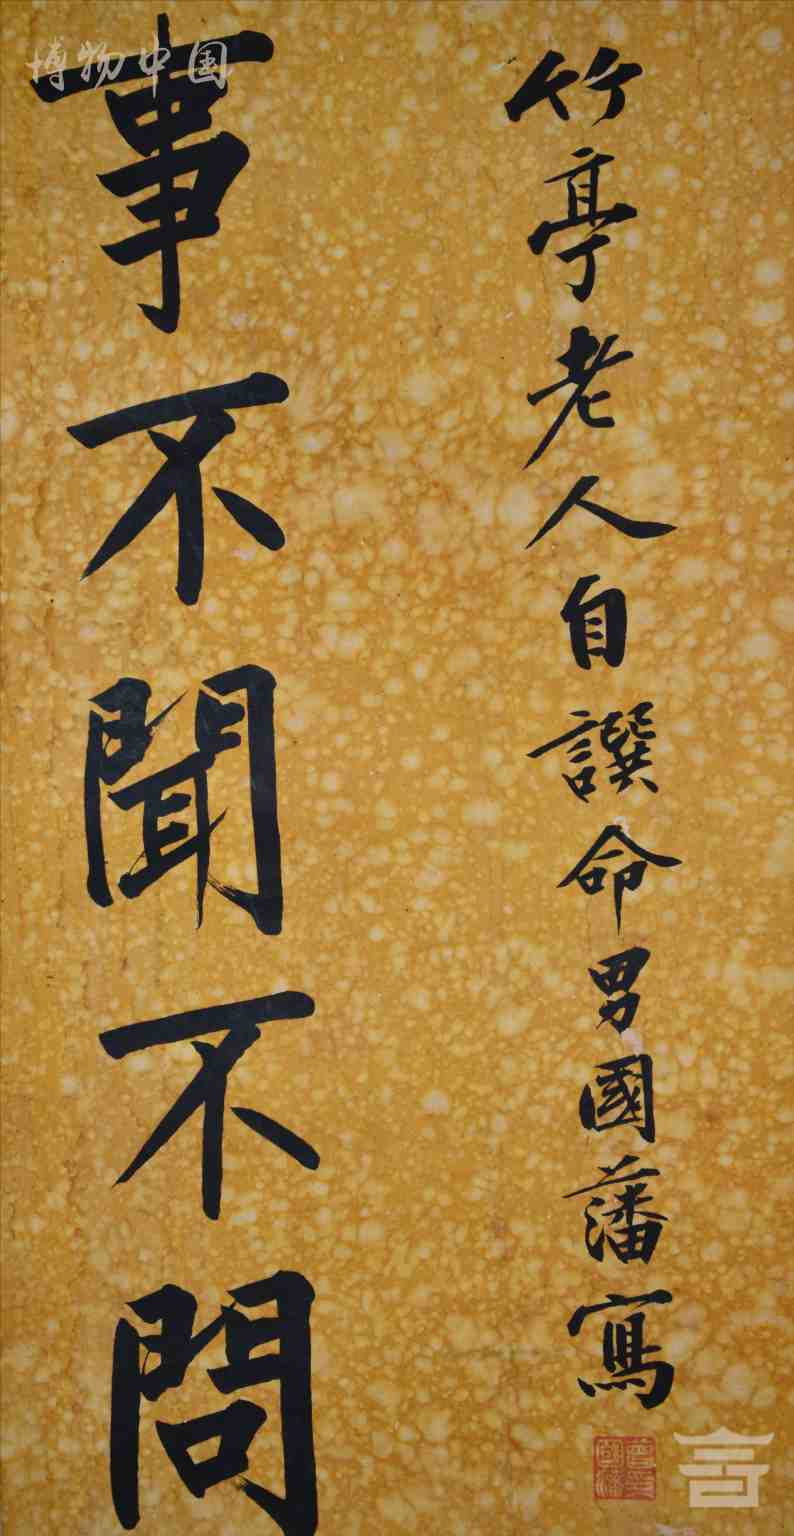 竹亭老人自譔命男國藩寫
事不聞不問
博物中国